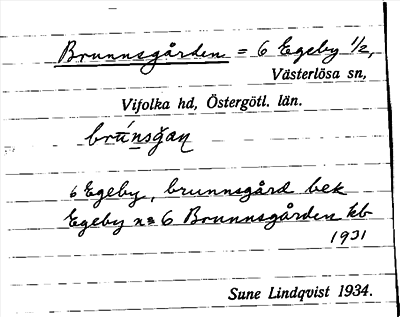 Brunnsgården = 6 Egeby 1/2,
Västerlösa sn,
Vifolka hd, Östergötl. län.
brúnsgan
6 Egeby, brunnsgård bek
Egeby n:o 6 Brunnsgården kb
1931
Sune Lindqvist 1934.